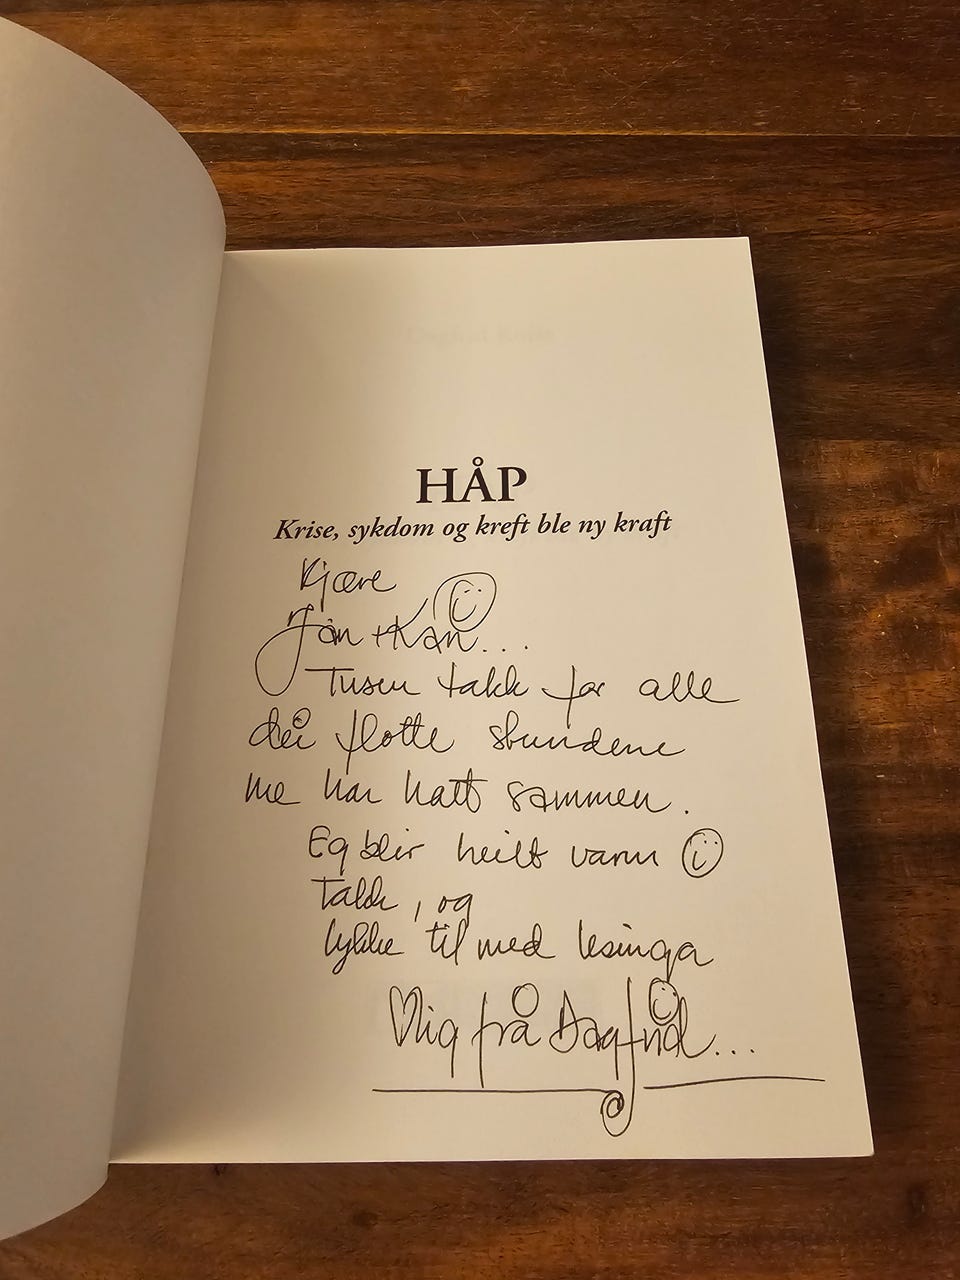 HÅP
Krise, sykdom og kreft ble ny kraft
Kjære
Jan + Kari...
Tusen takk for alle
dei flotte stundene
me har hatt sammen.
Eg blir heilt varm
Takk, og
lykke til med lesinga
frå Dagfrid...